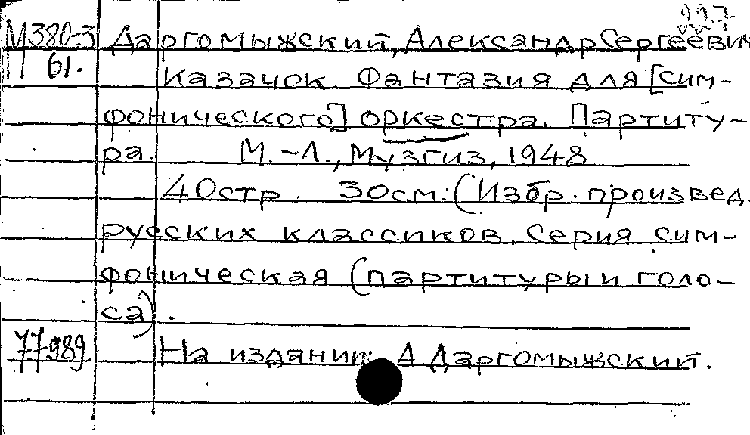 М380-3 Даргомыжский, Александр Сергеевич
61. Казачок. Фантазия для [сим-
фонического] оркестра. Партиту-
ра. М.-Л., Музгиз, 1948
40стр. 30см. (Избр. произвед.
русских классиков. Серия сим-
фоническая (партитуры и голо-
са).
77989 На издании: А Даргомыжский.